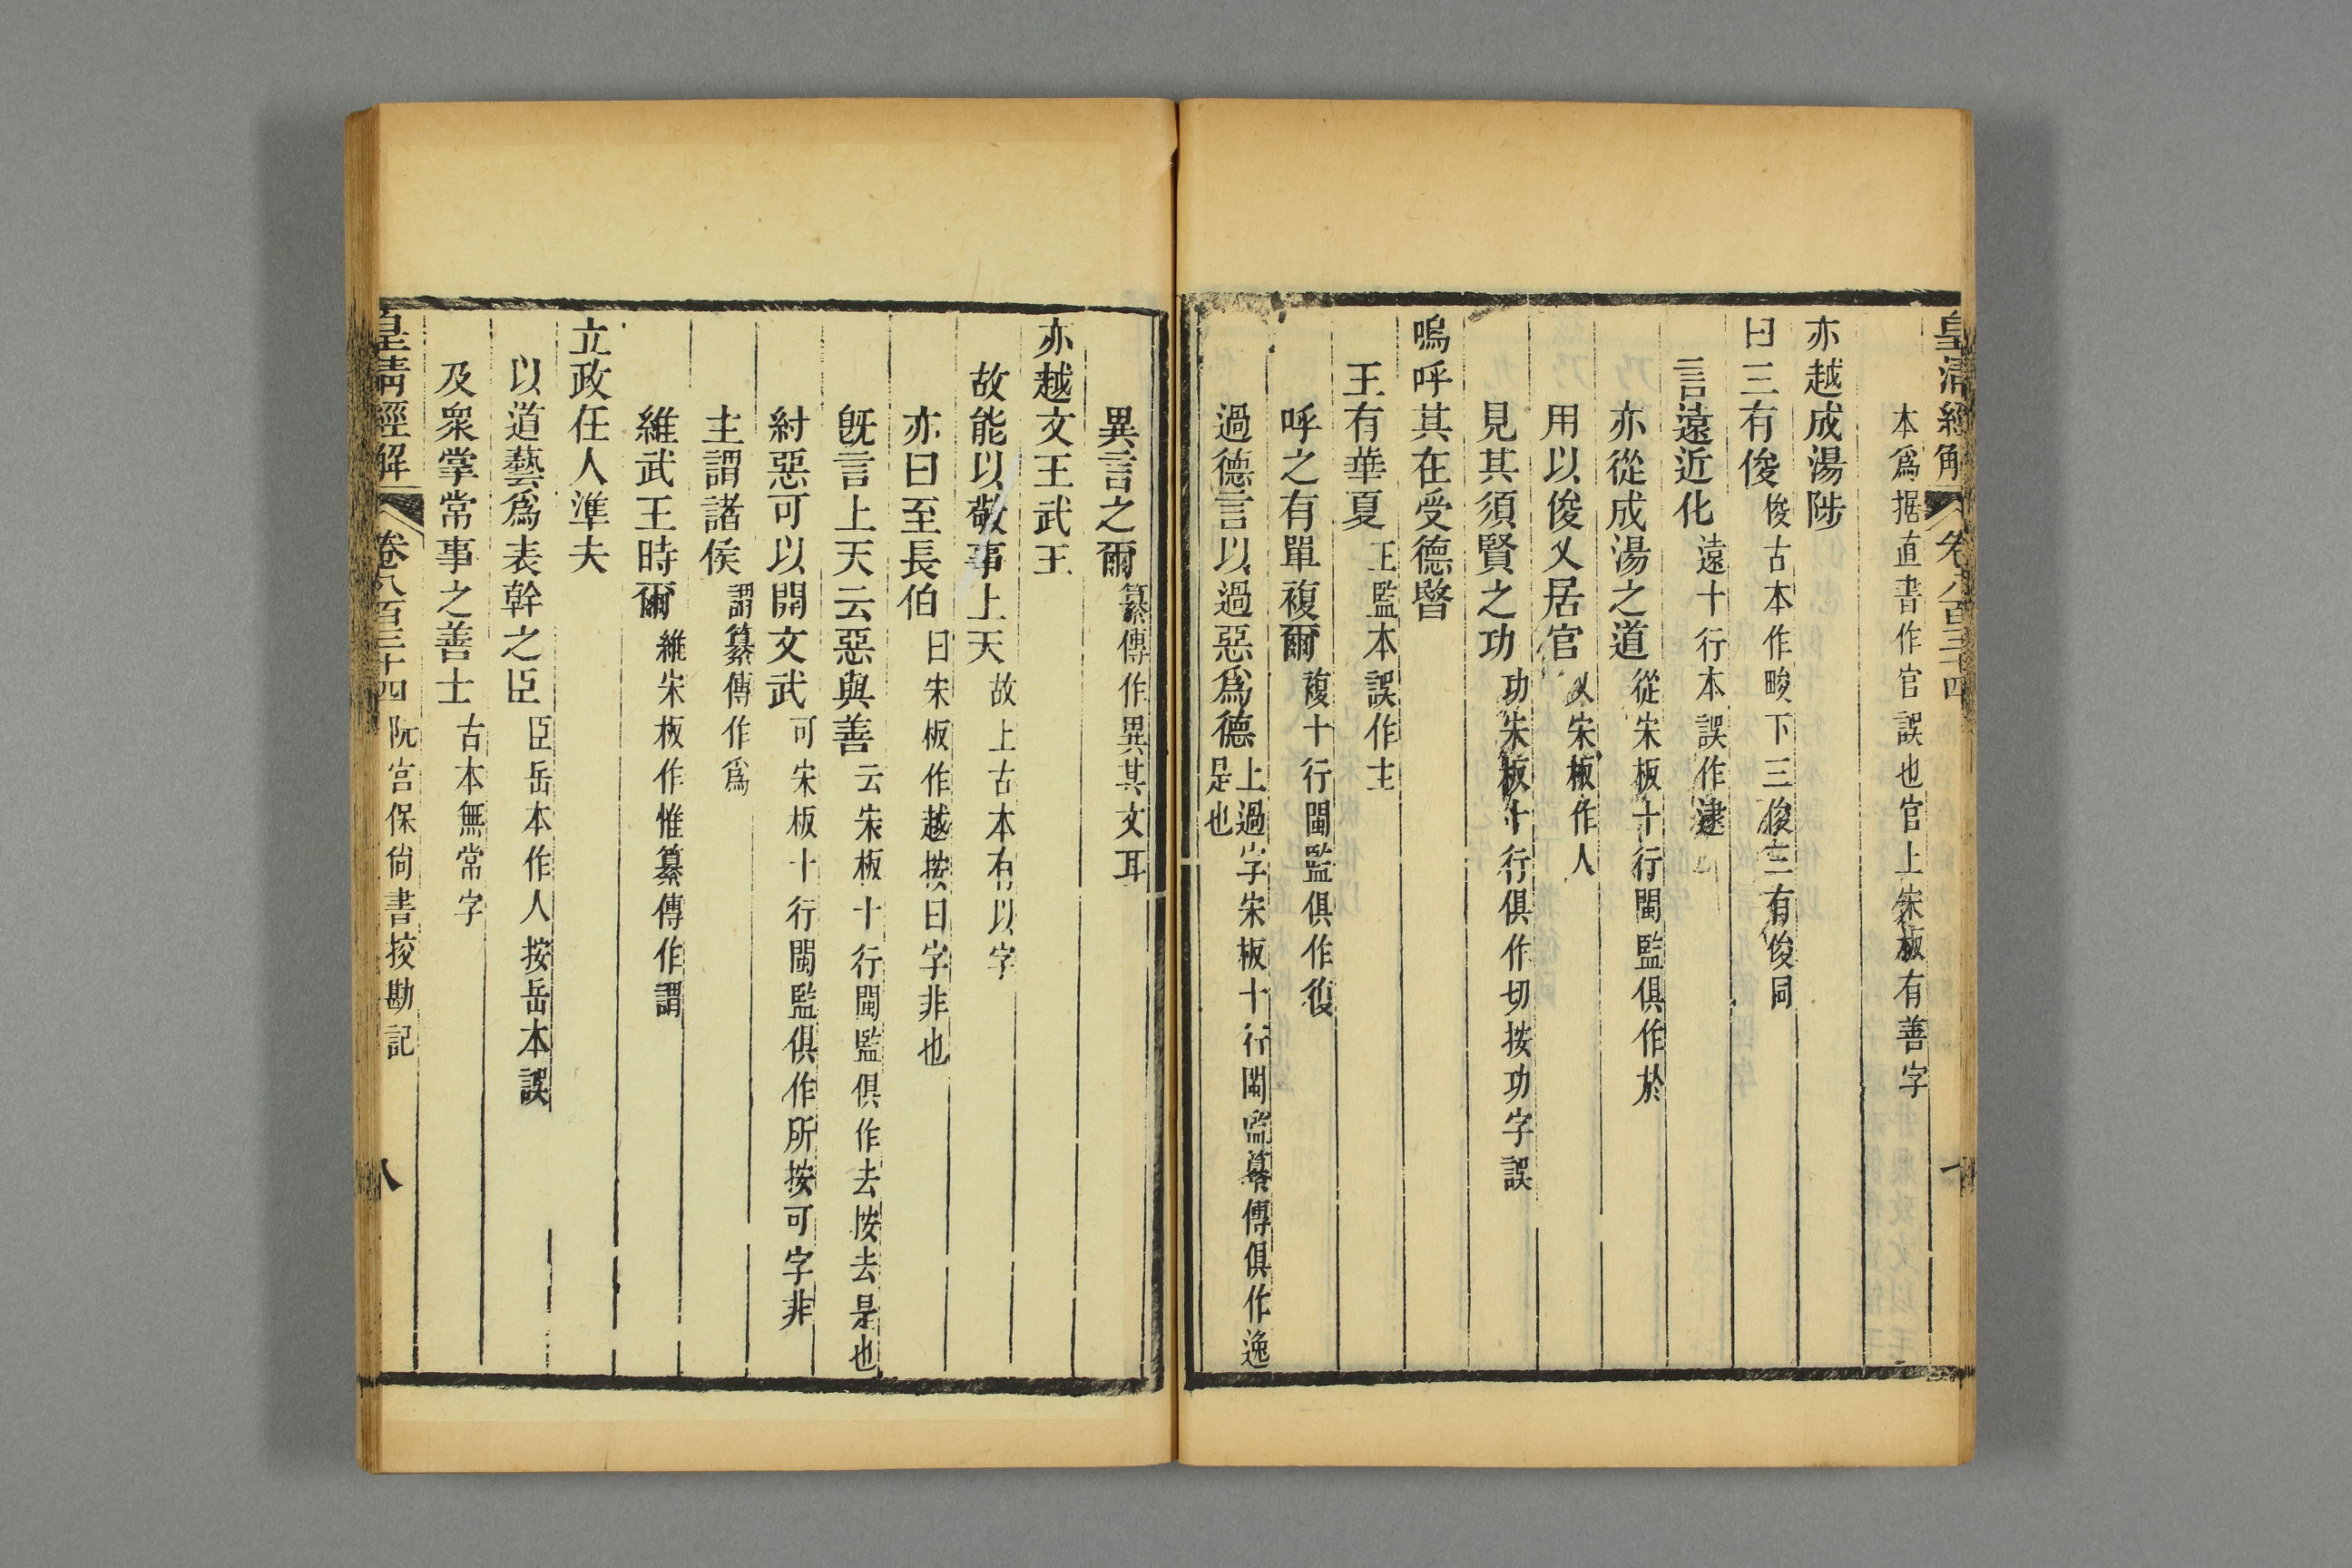 皇清經解 卷八百三十四
本爲据直書作官誤也官上宋板有善字
亦越成湯陟
曰三有俊 俊古本作畯下三俊三有俊同
言遠近化 遠十行本誤作逮
亦從成湯之道 從宋板十行閩監俱作於
用以俊乂居官 乂宋板作人
見其須賢之功 功宋板十行俱作切按功字誤
嗚呼其在受德暋
王有華夏 王監本誤作主
呼之有單複爾 複十行閩監俱作復
過德言以過惡爲德 上過字宋板十行閩監纂傳俱作逸
是也
異言之爾 纂傳作異其文耳
亦越文王武王
故能以敬事上天 故上古本有以字
亦曰至長伯 曰宋板作越按曰字非也
既言上天云惡與善 云宋板十行閩監俱作去按去是也
紂惡可以開文武 可宋板十行閩監俱作所按可字非
主謂諸侯 謂纂傳作爲
維武王時爾 維宋板作惟纂傳作謂
立政任人準夫
以道藝爲表幹之臣 臣岳本作人按岳本誤
及衆掌常事之善士 古本無常字
皇清經解 卷八百三十四 阮宮保尙書挍勘記 八